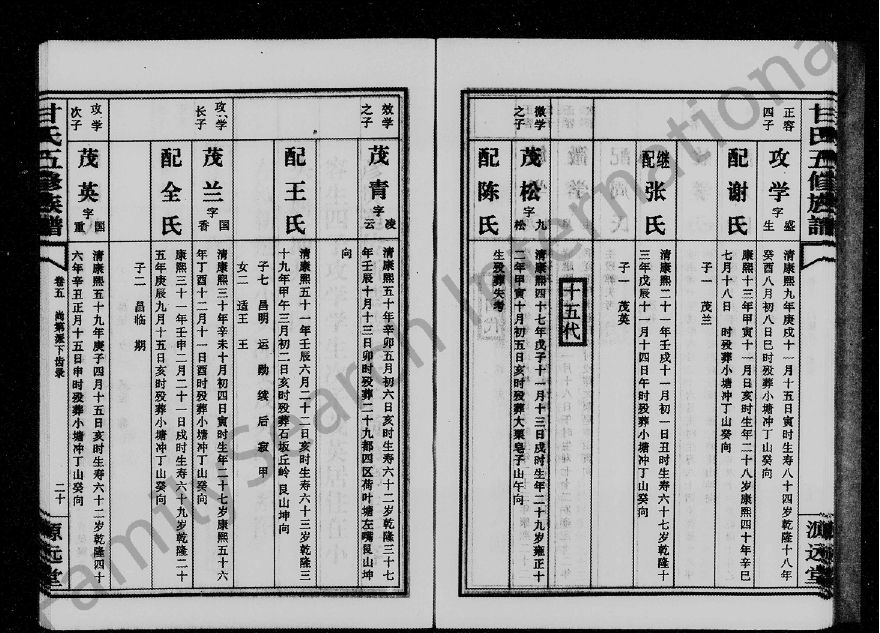 甘氏五修族谱
源远堂
正容
四子
攻学
字盛生
清康熙九年庚戌十一月十五日寅时生寿八十四岁乾隆十八年
癸酉八月初八日巳时殁葬小塘冲丁山癸向
配谢氏
清康熙十三年甲寅十一月初三日亥时生年二十八岁康熙四十年辛巳
七月十八日 时殁葬小塘冲丁山癸向
子一 茂兰
继配张氏
清康熙二十一年壬戌十一月初一日丑时生寿六十七岁乾隆十
三年戊辰十一月十四日午时殁葬小塘冲丁山癸向
子一 茂英
十五代
微学
之子
茂松
字九松
清康熙四十七年戊子十一月十三日戌时生年二十九岁雍正十
二年甲寅十月初五亥时殁葬大栗皂子山午向
配陈氏
生殁葬失考
效学
之子
茂青
字凌云
清康熙五十年辛卯五月初六日亥时生寿六十二岁乾隆三十七
年壬辰十月十三日卯时殁葬二十九都四区荷叶塘左嘴艮山坤
向
配王氏
清康熙五十一年壬辰六月二十二日亥时生寿六十三岁乾隆三
十九年甲午三月初二日亥时殁葬石坂丘岭艮山坤向
子七 昌明 运 勋 缤 后 寂 甲
女二 适王 王
攻学
长子
茂兰
字国香
清康熙三十年辛未十月初四日寅时生年二十七岁康熙五十六
年丁酉十二月十一日酉时殁葬小塘冲丁山癸向
配全氏
康熙三十一年壬申二月二十一日戌时生寿六十九岁乾隆二十
五年庚辰九月十五日亥时殁葬小塘冲丁山癸向
子二 昌临 期
攻学
次子
茂英
字国重
清康熙五十九年庚子四月十五日亥时生寿六十二岁乾隆四十
六年辛丑正月十五日申时殁葬小塘冲丁山癸向
甘氏五修族谱
卷五 尚第派下齿录
二十
源远堂
FamilySearch International